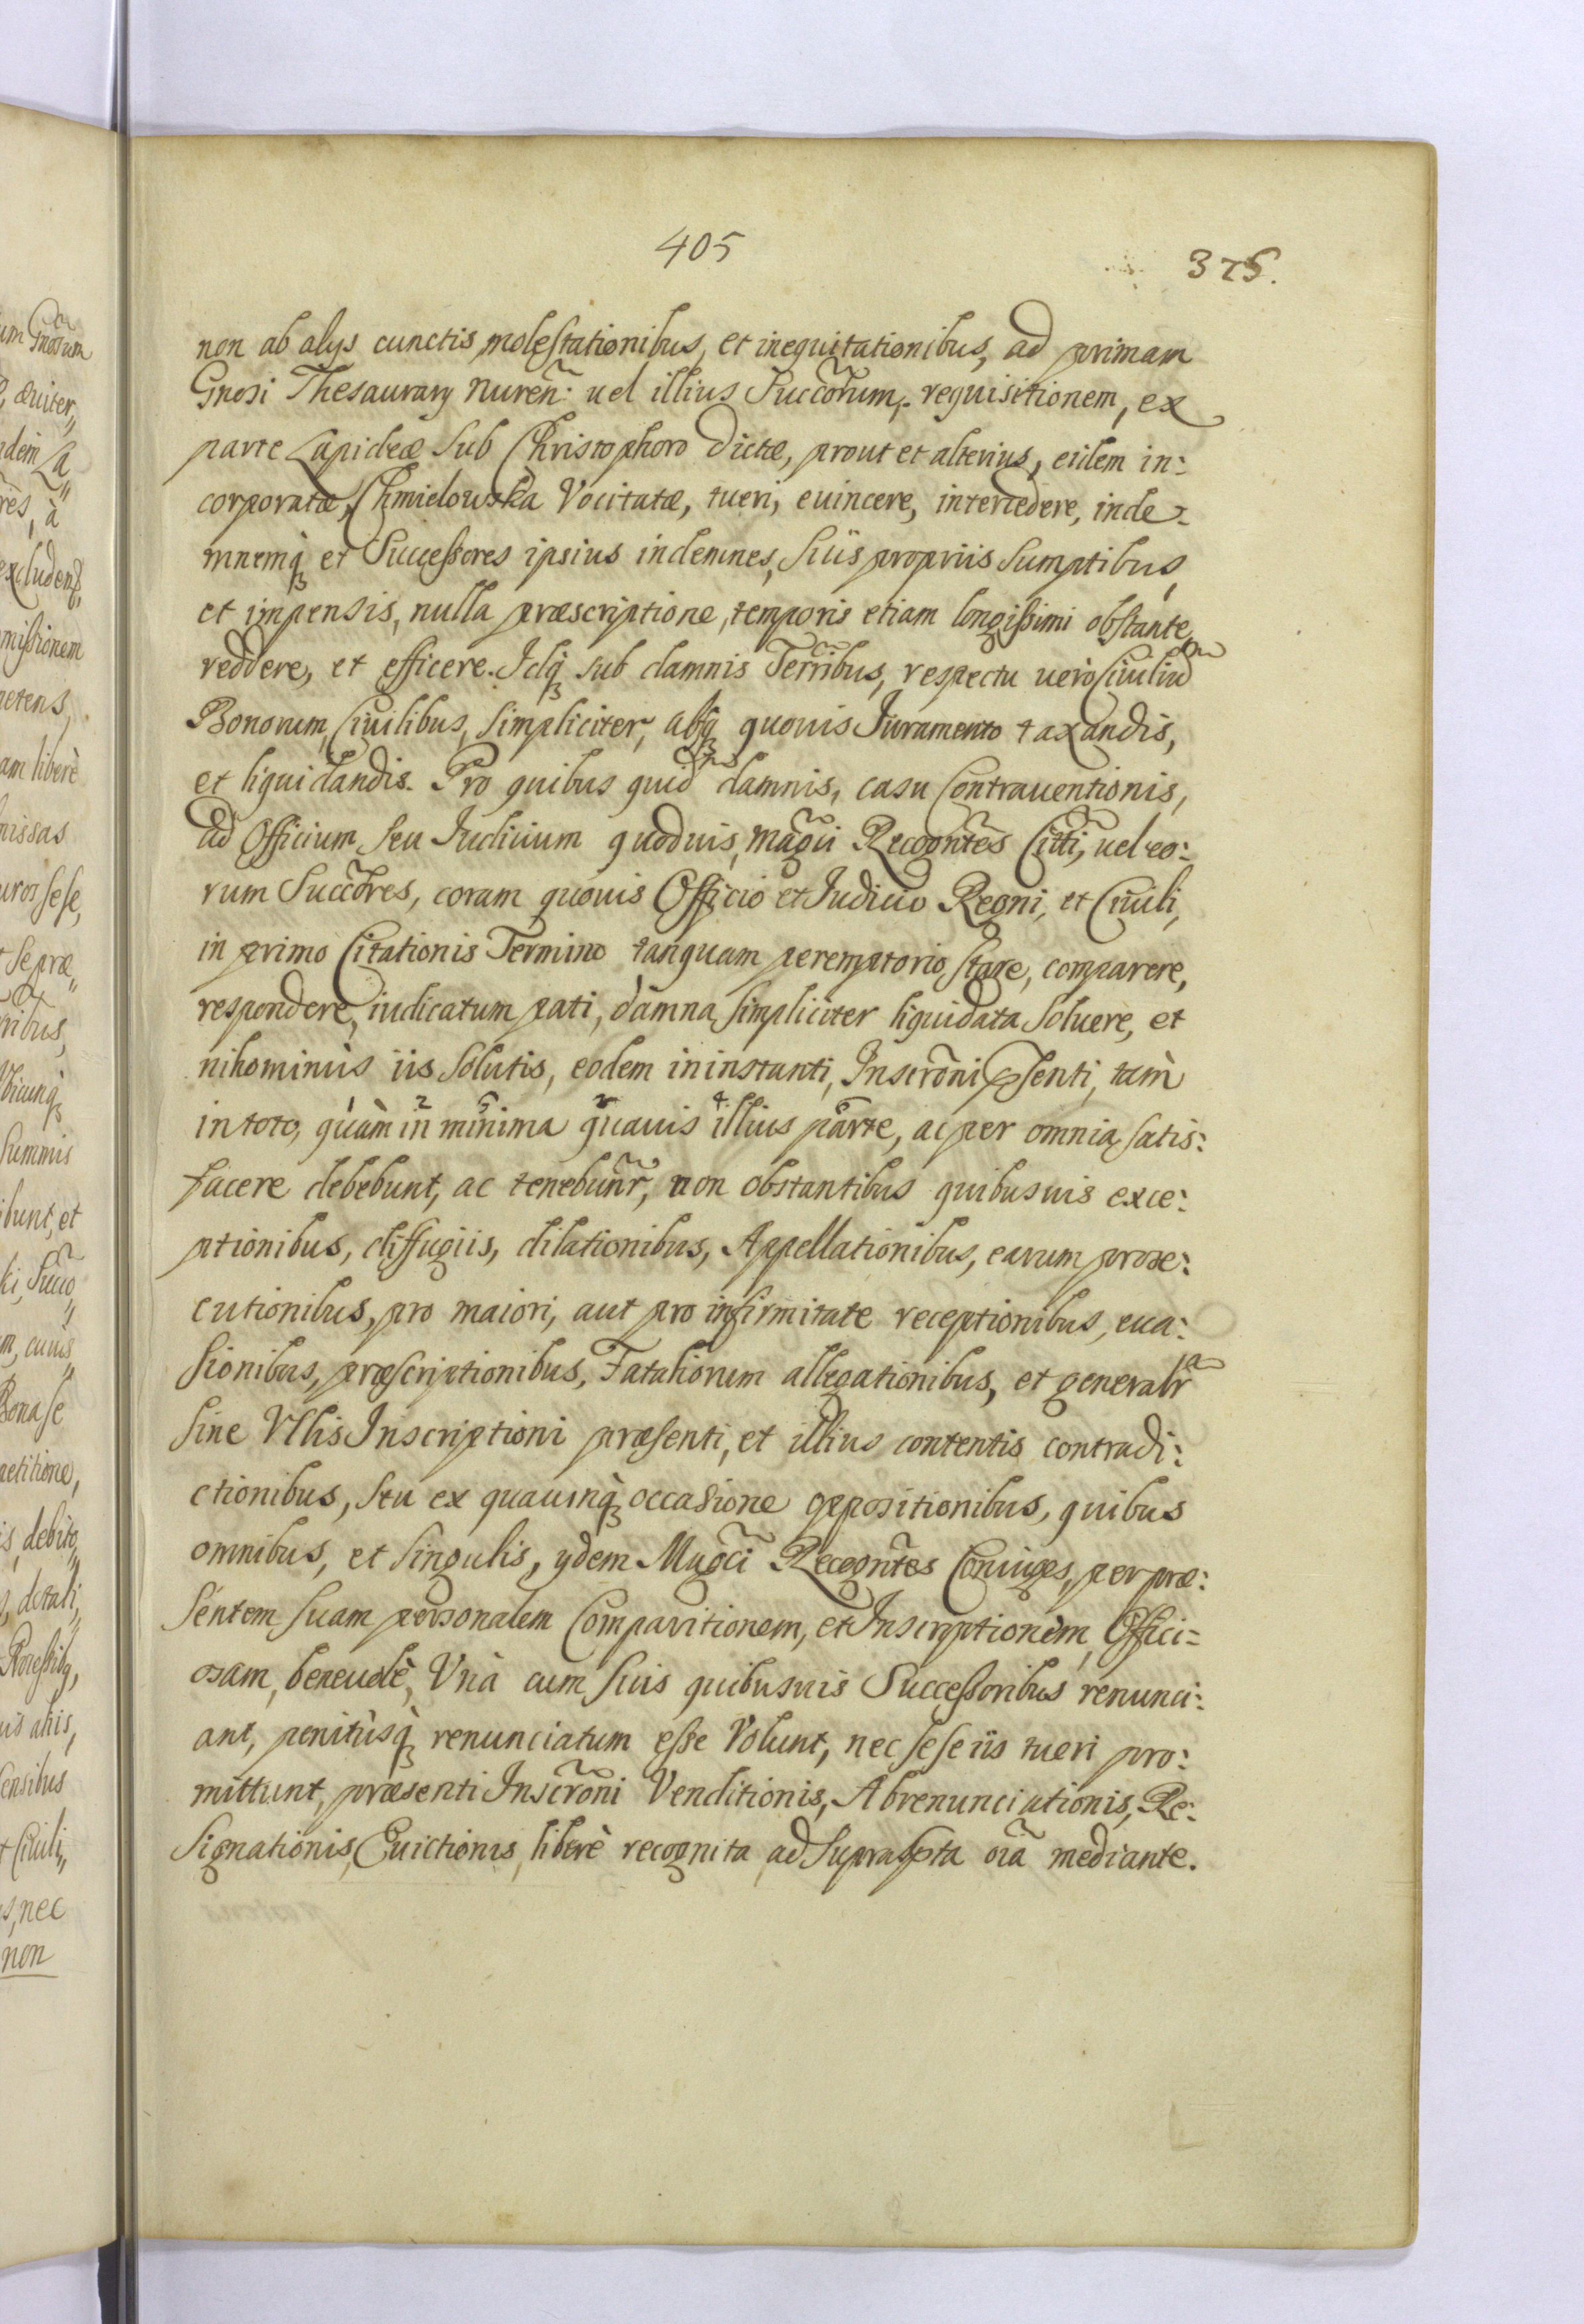 405
375.
non ab alys cunctis molestationibus, et inequitationibus, ad primam
Gnosi Thesaurary Nureñ: uel illius Succõrum, requisitionem, ex
parte Lapideæ sub Christophoro dictæ, prout et alterius, eidem in:
corporatæ, Chmielowska Vocitatæ, tueri, euincere, intercedere, inde:
mnemq̀ et Successores ipsius indemnes, suis propriis sumptibus
et impensis, nulla præscriptione, temporis etiam longissimi obstante,
reddere, et efficere. Idq̀ sub damnis Terr̃ibus, respectu uerò Ciuiliũ
Bonorum, Ciuilibus, simpliciter, absq̀ quouis Iuramento taxandis,
et liquidandis. Pro quibus quid̃ damnis, casu Contrauentionis,
ad Officium seu Iudicium quoduis, Mag̃ci Recogñtes Citti, uel eo:
rum Succõres, coram quouis Officio et Iudicio Regni, et Ciuili,
in primo Citationis Termino tanquam peremptorio, stare, comparere,
respondere, iudicatum pati, damna simpliciter liquidata soluere, et
nihominùs iis solutis, eodem in instanti, Inscrõni p̃senti, tàm
in toto, quàm in minima quauis illius parte, ac per omnia satis:
1 2 5 3 4 6
facere debebunt, ac tenebunr̃, non obstantibus quibusuis exce:
ptionibus, diffugiis, dilationibus, Appellationibus, earum prose:
cutionibus, pro maiori, aut pro infirmitate receptionibus, eua:
sionibus, præscriptionibus, Fataliorum allegationibus, et generalr̃
sine Vllis Inscriptioni præsenti, et illius contentis contradi:
ctionibus, seu ex quacunq̀ occasione oppositionibus, quibus
omnibus, et singulis, ydem Mag̃ci Recogñtes Coniuges, per præ:
sentem suam personalem Comparitionem, et Inscriptionem, Offici=
osam, beneuolè, Vnà cum suis quibusuis Successoribus renunci:
ant, penitùsq̀ renunciatum esse Volunt, nec sese iis tueri pro:
mittunt, præsenti Inscrõni Venditionis, Abrenunciationis, Re:
signationis, Euictionis, liberè recognita, ad suprasp̃ta oĩa mediante.